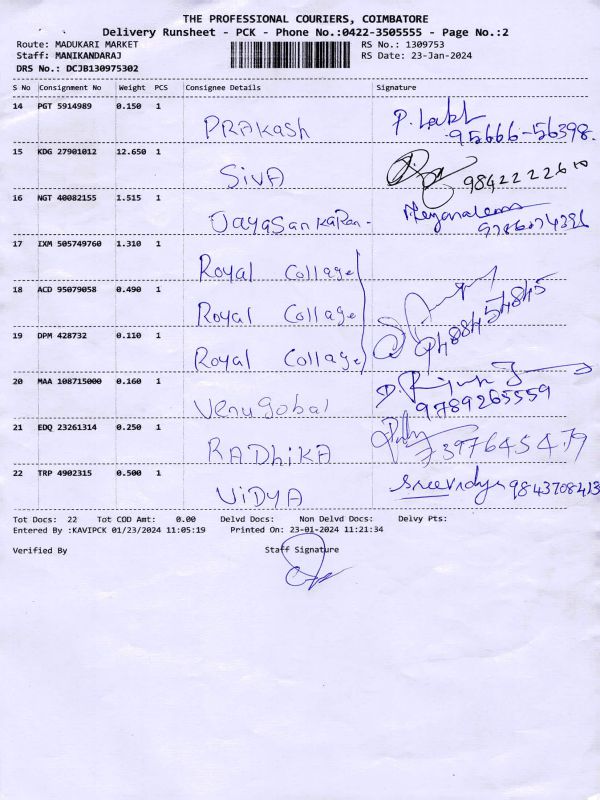 THE PROFESSIONAL COURIERS, COIMBATORE
Delivery Runsheet - PCK - Phone No.:0422-3505555 - Page No.:2
Route: MADUKARI MARKET RS No.: 1309753
Staff: MANIKANDARAJ RS Date: 23-Jan-2024
DRS No.: DCJB130975302
S No Consignment No Weight PCS Consignee Details Signature
14 PGT 5914989 0.150 1
PRAkash 95666-56398.
15 KDG 27901012 12.650 1
SIVA 9842222610
16 NGT 40082155 1.515 1
JayaSankaRan-
17 IXM 505749760 1.310 1
Royal Collage
18 ACD 95079058 0.490 1
Royal Collage 9488454845
19 DPM 428732 0.110 1
Royal Collage
20 MAA 108715000 0.160 1
Venugobal 9789265559
21 EDQ 23261314 0.250 1
RADhiKA 7397645479
22 TRP 4902315 0.500 1
ViDYA Sreevidya 9843708413
Tot Docs: 22 Tot COD Amt: 0.00 Delvd Docs: Non Delvd Docs: Delvy Pts:
Entered By :KAVIPCK 01/23/2024 11:05:19 Printed On: 23-01-2024 11:21:34
Verified By Staff Signature